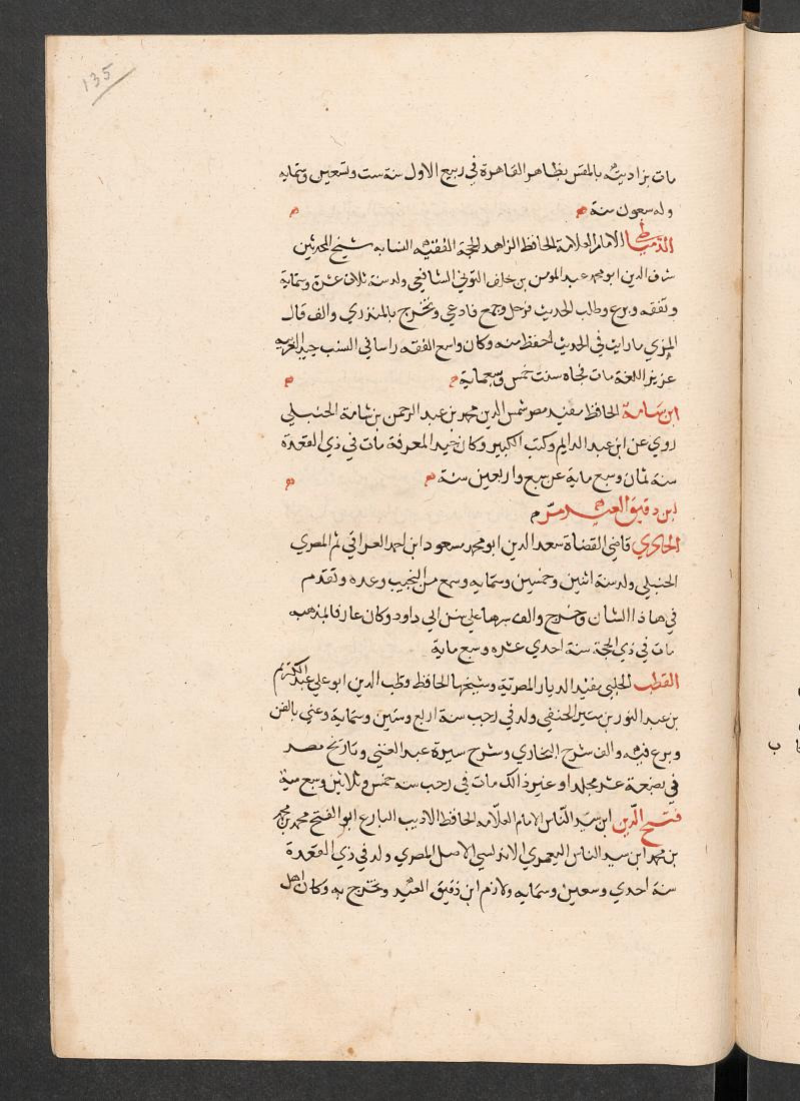 135
مات بزاديته بالمقس بظاهر القاهرة في ربيع الاول سنة ست وتسعين وستمايه
وله سبعون سنة م م
الدمياطي الامام العلامة الحافظ الزاهد الحجة الفقيه النسابه شيخ المحدثين
شرف الدين ابو محمد عبد المومن بن خلف التوني الشافعي ولد سنة ثلاث عشرة وستماية
وتفقه وبرع وطلب الحديث فرحل وجمع فاوعي وتخرج بالمنذري والف قال
المزي ما رايت في الحديث احفظ منه وكان واسع الفقه راسا في النسب جيد العربيه
عزيز اللغة مات فجاه سنت خمس وسبعماية م م
ابن شامة الحافظ مفيد مصر شمس الدين محمد بن عبد الرحمن بن شامة الحنبلي
روي عن ابن عبد الدايم وكتب الكبير وكان جيد المعرفة مات في ذي القعدة
سنة ثمان وسبع ماية عن سبع واربعين سنة م م
ابن دقيق العيد مر م
الحارثي قاضي القضاة سعد الدين ابو محمد سعود ابن احمد العراقي ثم المصري
الحنبلي ولد سنة اثنين وخمسين وستمايه وسمع من النجيب وعده وتقدم
في هاذا الشان وخرج والف شرحا علي سنن ابي داود وكان عارفا بمذهبه
مات في ذي الحجة سنة احدي عشره وسبع ماية
القطب الحلبي مفيد الديار المصرية وشيخها الحافظ وقطب الدين ابو علي عبد الكريم
بن عبد النور بن منير الحنفي ولد في رجب سنة اربع وستين وستماية وعني بالفن
وبرع فيه والف شرح البخاري وشرح سيرة عبد الغني وتاريخ مصر
في بضعة عشر مجلدا وغير ذالك مات في رجب سنه خمس وثلاثين وسبع مية
فتح الدين ابن سيد الناس الامام العلامه الحافظ الاديب البارع ابو الفتح محمد بن محمد
بن محمد ابن سيد الناس اليعمري الاندلسي الاصل المصري ولد في ذي القعدة
سنة احدي وسبعين وستمايه ولازم ابن دقيق العيد وتخرج به وكان اهل